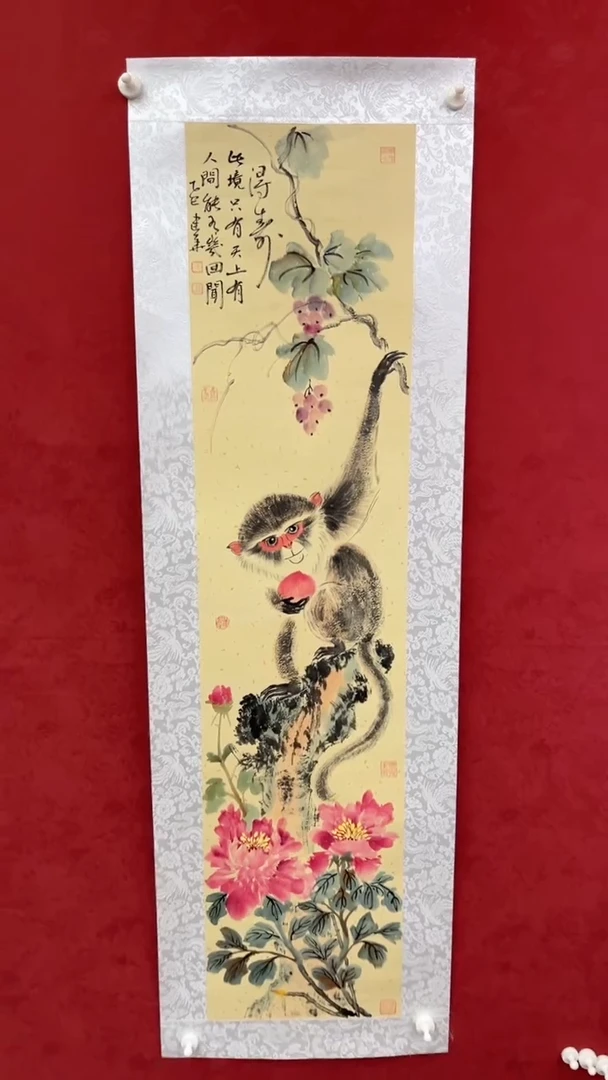 得寿
此境只有天上有
人間能有幾回聞
乙巳 建華